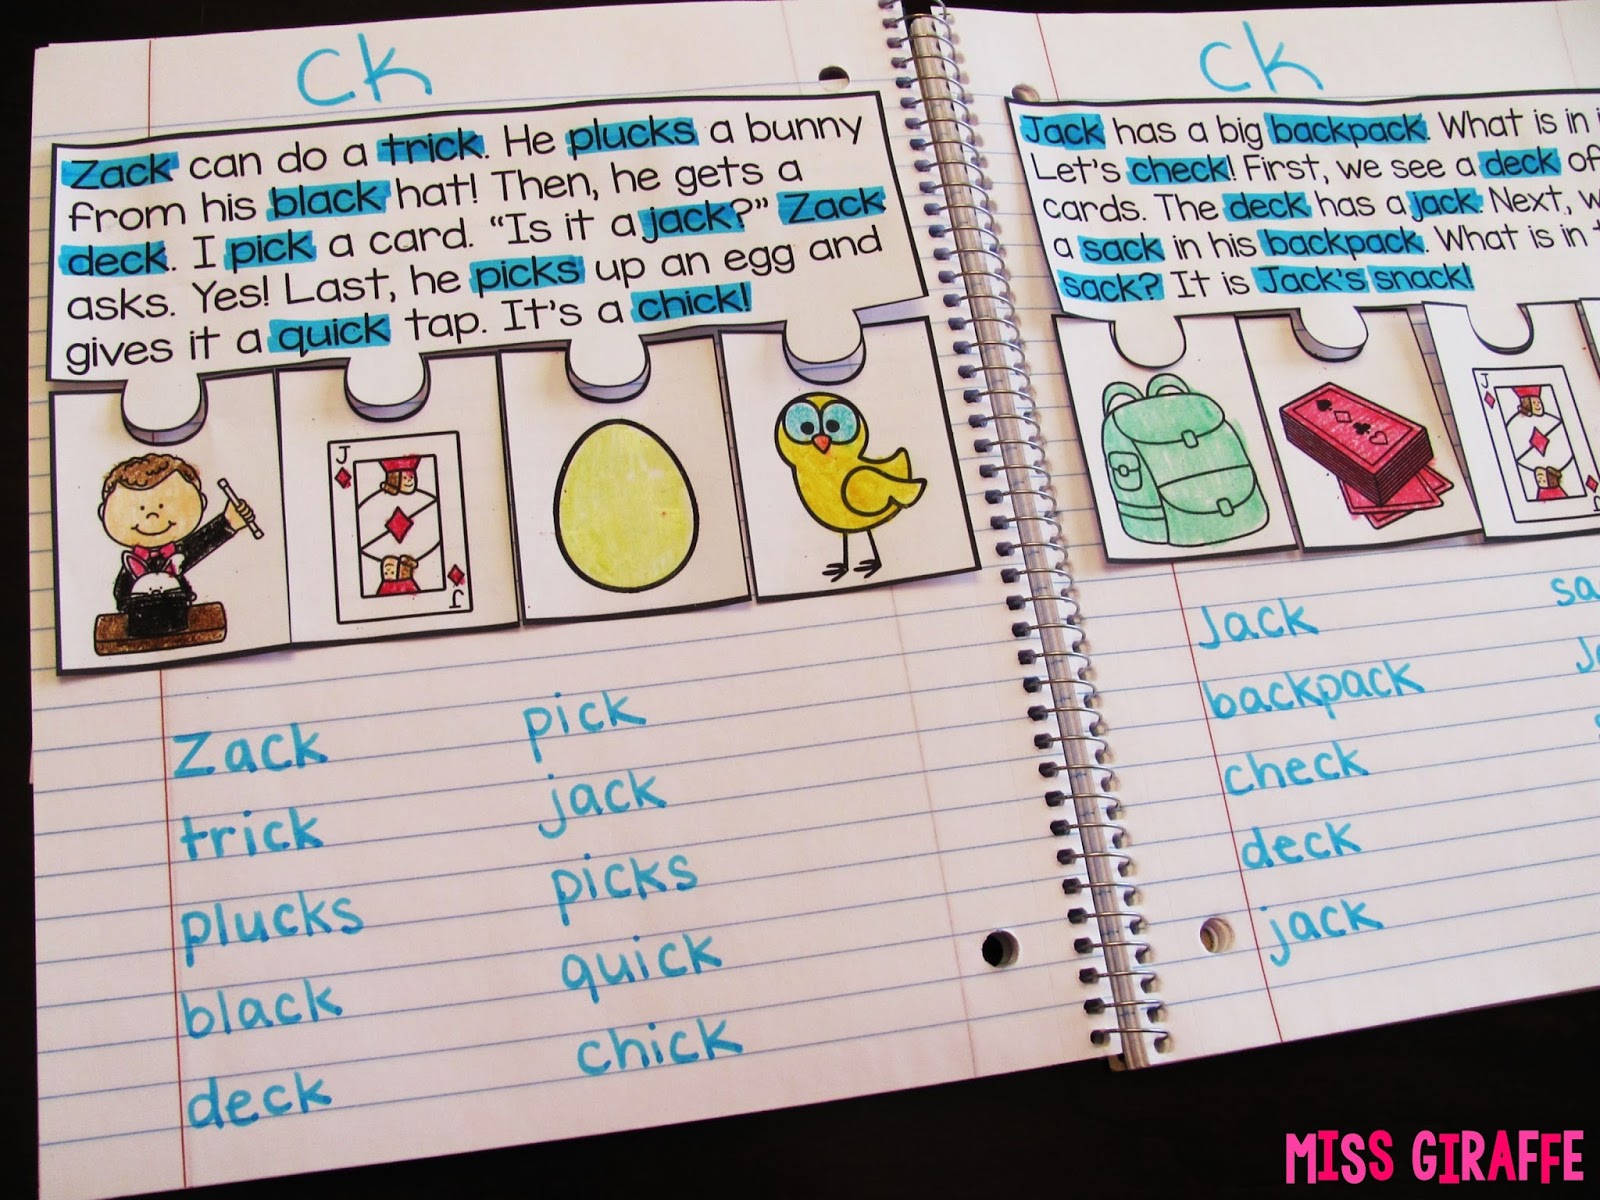 ck
Zack can do a trick. He plucks a bunny
from his black hat! Then, he gets a
deck. I pick a card. “Is it a jack?” Zack
asks. Yes! Last, he picks up an egg and
gives it a quick tap. It's a chick!
J
J
Zack
trick
plucks
black
deck
pick
jack
picks
quick
chick
ck
Jack has a big backpack. What is in
Let's check! First, we see a deck of
cards. The deck has a jack. Next,
a sack in his backpack. What is in
sack? It is Jack's snack!
J
J
Jack
backpack
check
deck
jack
MISS GIRAFFE